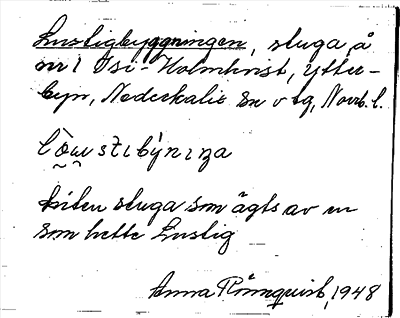 Lustigbyggningen, stuga å
nr 1 Isi-Holmkvist, Ytter-
byn, Nederkalix sn o tg, Norrb. l.
liten stuga som ägts av en
som hette Lustig
Anna Rönnquist, 1948